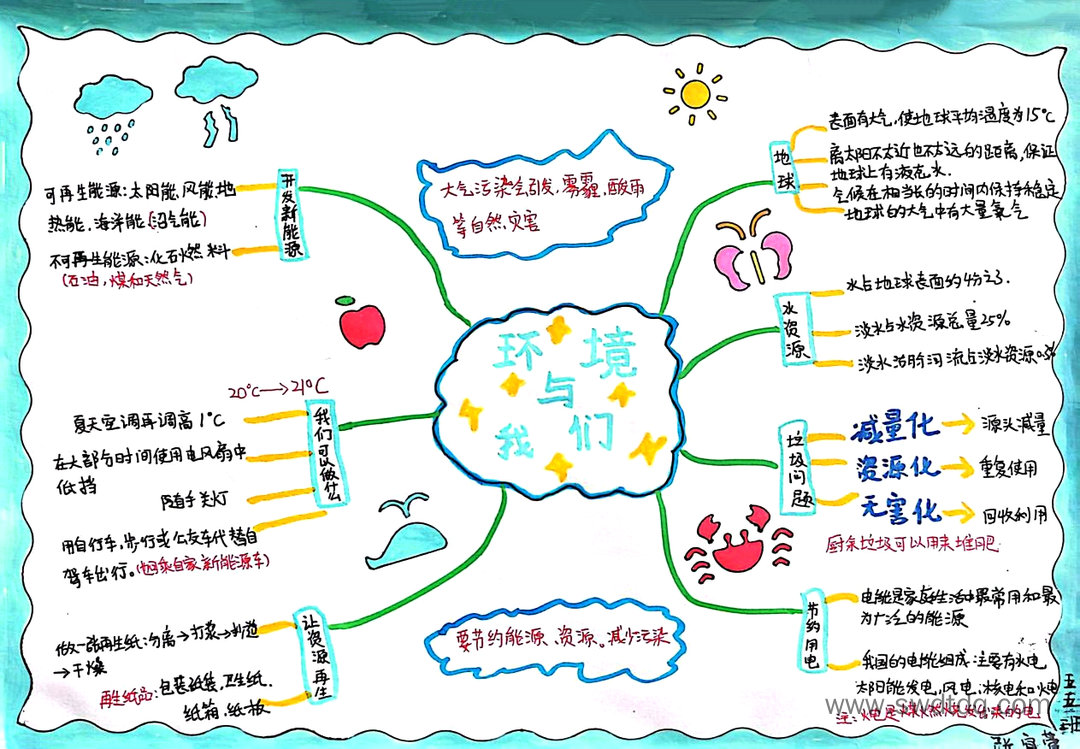 环境
与
我们
大气污染会引发,雾霾,酸雨
等自然灾害
地球
表面有大气,使地球平均温度为15°C
离太阳不太近也不太远的距离,保证
地球上有液态水.
气候在相当长的时间内保持稳定
地球的大气中有大量氧气
水资源
水占地球表面的4分之3.
淡水占水资源总量25%
淡水湖
河流占淡水资源0.3%
垃圾问题
减量化→源头减量
资源化→重复使用
无害化→回收利用
厨余垃圾可以用来堆肥
节约用电
电能是家庭生活中最常用和最
为广泛的能源
我国的电能组成:注要有水电
太阳能发电,风电,核电和火电
注:火电是煤燃烧发出来的电
开发新能源
可再生能源:太阳能,风能,地
热能,海洋能(沼气能)
不可再生能源:化石燃料
(石油,煤和天然气)
我们可以做什么
20°C→21°C
夏天空调再调高1°C
在大部分时间使用电风扇中
低挡
随手关灯
用自行车,步行或公交车代替自
驾车出行。(
乘自家新能源车)
让资源再生
做一张再生纸:分离→打浆→抄造
→干燥
再生纸品:包装纸袋,卫生纸.
纸箱.纸板
要节约能源、资源。减少污染
五五班
张
www.swdtdq.com